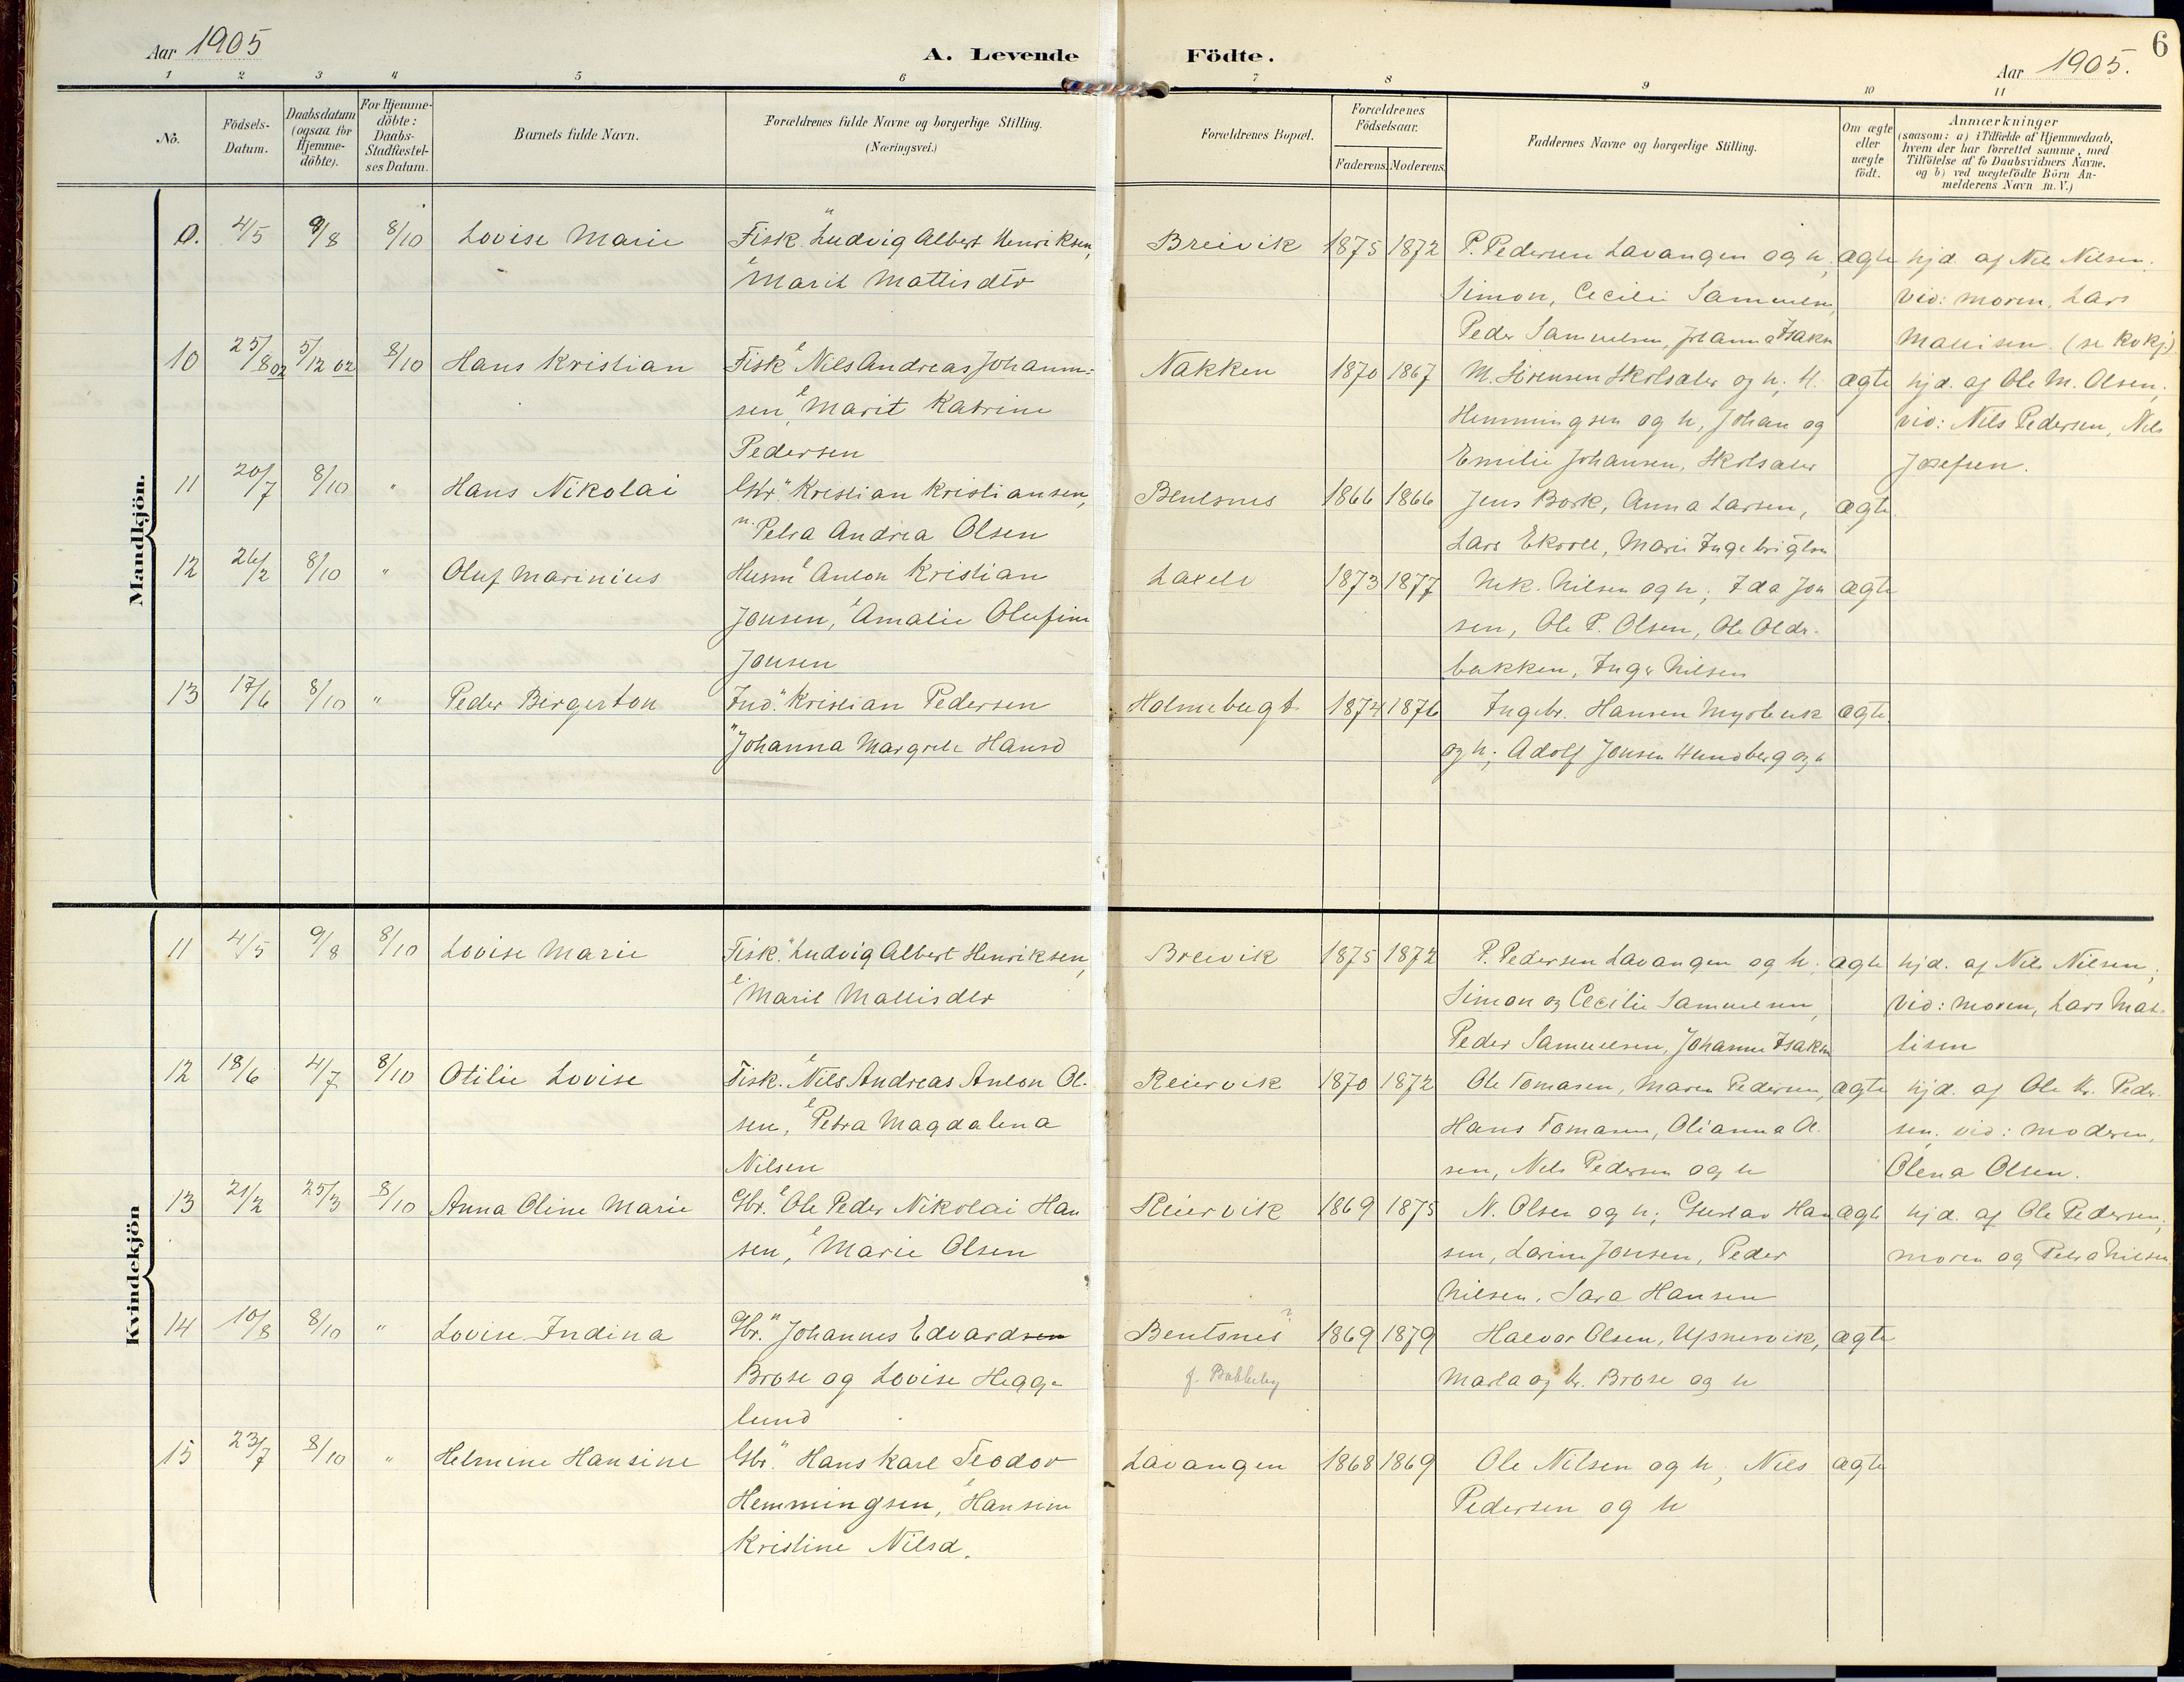 Aar 1905
A. Levende Födte.
Aar 1905.
6
1 2 3 4 5 6 7 8 9 10 11
No.
Födsels-Datum.
Daabsdatum (ogsaa for Hjemme-döbte).
For Hjemme-döbte: Daabs-Stadfæstel-ses Datum.
Barnets fulde Navn.
Forældrenes fulde Navne og borgerlige Stilling. (Næringsvei.)
Forældrenes Bopæl.
Forældrenes Födselsaar.
Faderens. Moderens.
Faddernes Navne og borgerlige Stilling.
Om ægte eller uægte födt.
Anmærkninger (saasom: a) i Tilfælde af Hjemmedaab, hvem der har forrettet samme, med Tilföielse af to Daabsvidners Navne, og b) ved uægtefödte Börn An-melderens Navn m. V.)
Mandkjön.
0. 4/5 9/8 8/10 Lovise Marie Fisk. Ludvig Albert Henriksen, Breivik 1875 1872 P. Pedersen Lavangen og h; ægte hjd. af Nils Nilsen.
Marit Mattisdtr Simon, Cecilie Samuelsen, vid: moren, Lars
Peder Samuelsen, Johanna Isaksn Mattisen. (se kvkj)
10 25/8 02 5/12 02 8/10 Hans Kristian Fisk Nils Andreas Johann- Nakken 1870 1867 M. Sörensen Skolsaler og h; H. ægte hjd. af Ole M. Olsen;
sen, Marit Katrine Hemmingsen og h, Johan og vid: Nils Pedersen, Nils
Pedersen Emilie Johansen, Skolsaler Josefsen.
11 20/7 8/10 " Hans Nikolai Gbr " Kristian Kristiansen, Bentsnes 1866 1866 Jens Bork, Anna Larsen, ægte
" Petra Andrea Olsen Lars Ekroll, Marie Ingebrigtsn
12 26/2 8/10 " Oluf Marinius Husm Anton Kristian Laxelv 1873 1877 Nik. Nilsen og h; Ida Jon ægte
Jonsen, Amalie Olufine sen, Ole P. Olsen, Ole Oldr-
Jonsen bakken, Inger Nilsen
13 17/6 8/10 " Peder Birgerton Ind. " Kristian Pedersen Holmebugt 1874 1876 Ingebr. Hansen Myrbusk ægte
" Johanna Margrete Hansd og h; Adolf Jonsen Hundberg og h
Kvindekjön
11 4/5 9/8 8/10 Lovise Marie Fisk. " Ludvig Albert Henriksen, Breivik 1875 1872 P. Pedersen Lavangen og h; ægte hjd. af Nils Nilsen;
Marit Mattisdtr Simon og Cecilie Samuelsen, vid: moren, Lars Mat-
Peder Samuelsen, Johanne Isaksn tisen
12 18/6 4/7 8/10 Otilie Lovise Fisk. Nils Andreas Anton Ol- Reiervik 1870 1872 Ole Tomasen, Maren Pedersen, ægte hjd. af Ole Kr. Peder-
sen, Petra Magdalena Hans Tomasen, Olianna Ol- sen. vid: moderen,
Nilsen sen, Nils Pedersen og h Olena Olsen.
13 21/2 25/3 8/10 Anna Oline Marie Gbr. Ole Peder Nikolai Han Reiervik 1869 1875 N. Olsen og h; Gustav Han ægte hjd. af Ole Pedersen;
sen, Marie Olsen sen, Larine Jonsen, Peder moren og Petra Nilsen
Nilsen, Sara Hansen
14 10/8 8/10 " Lovise Indina Gbr. " Johannes Edvardsen Bentsnes ? 1869 1879 Halvor Olsen, Upsnervik, ægte
Brose og Lovise Hegge- f. Balleby Marta og Kr. Brose og h
lund
15 23/7 8/10 " Helmine Hansine Gbr. " Hans Karl Teodor Lavangen 1868 1869 Ole Nilsen og h; Nils ægte
Hemmingsen, Hansine Pedersen og h
Kristine Nilsd.